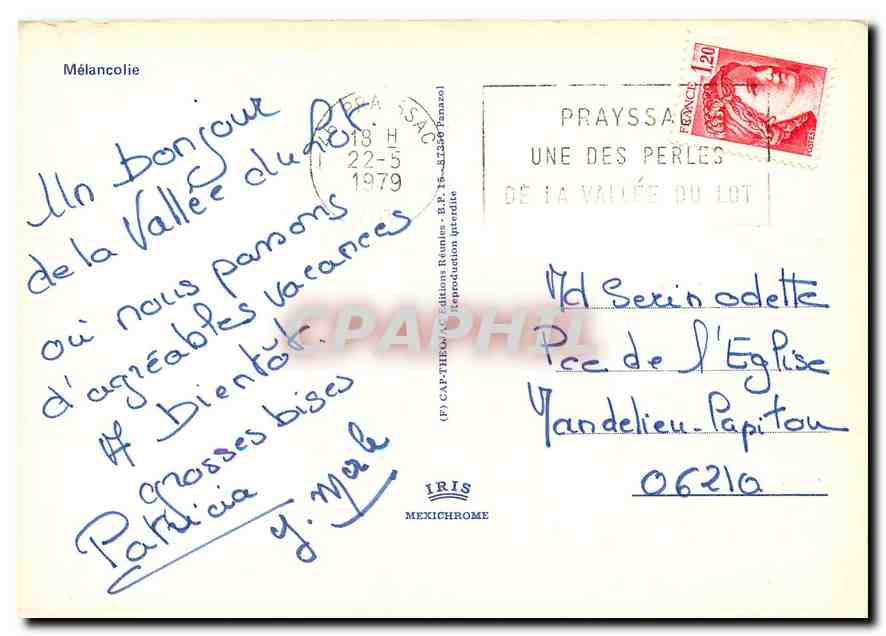 Mélancolie
Un bonjour
de la Vallée du Lot.
où nous passons
d'agréables vacances
A Bientôt.
grosses bises
Patricia
18 H
22-5
1979
PRAYSSA
UNE DES PERLES
DE LA VALLÉE DU LOT
FRANCE 1,20
POSTES
(F) CAP-THEOJAC Editions Réunies - B.P. 15 - 87350 Panazol
Reproduction interdite
CPAPHIL
Md Serin odette
Pce de l'Eglise
Mandelieu-Capitou
06210
IRIS
MEXICHROME